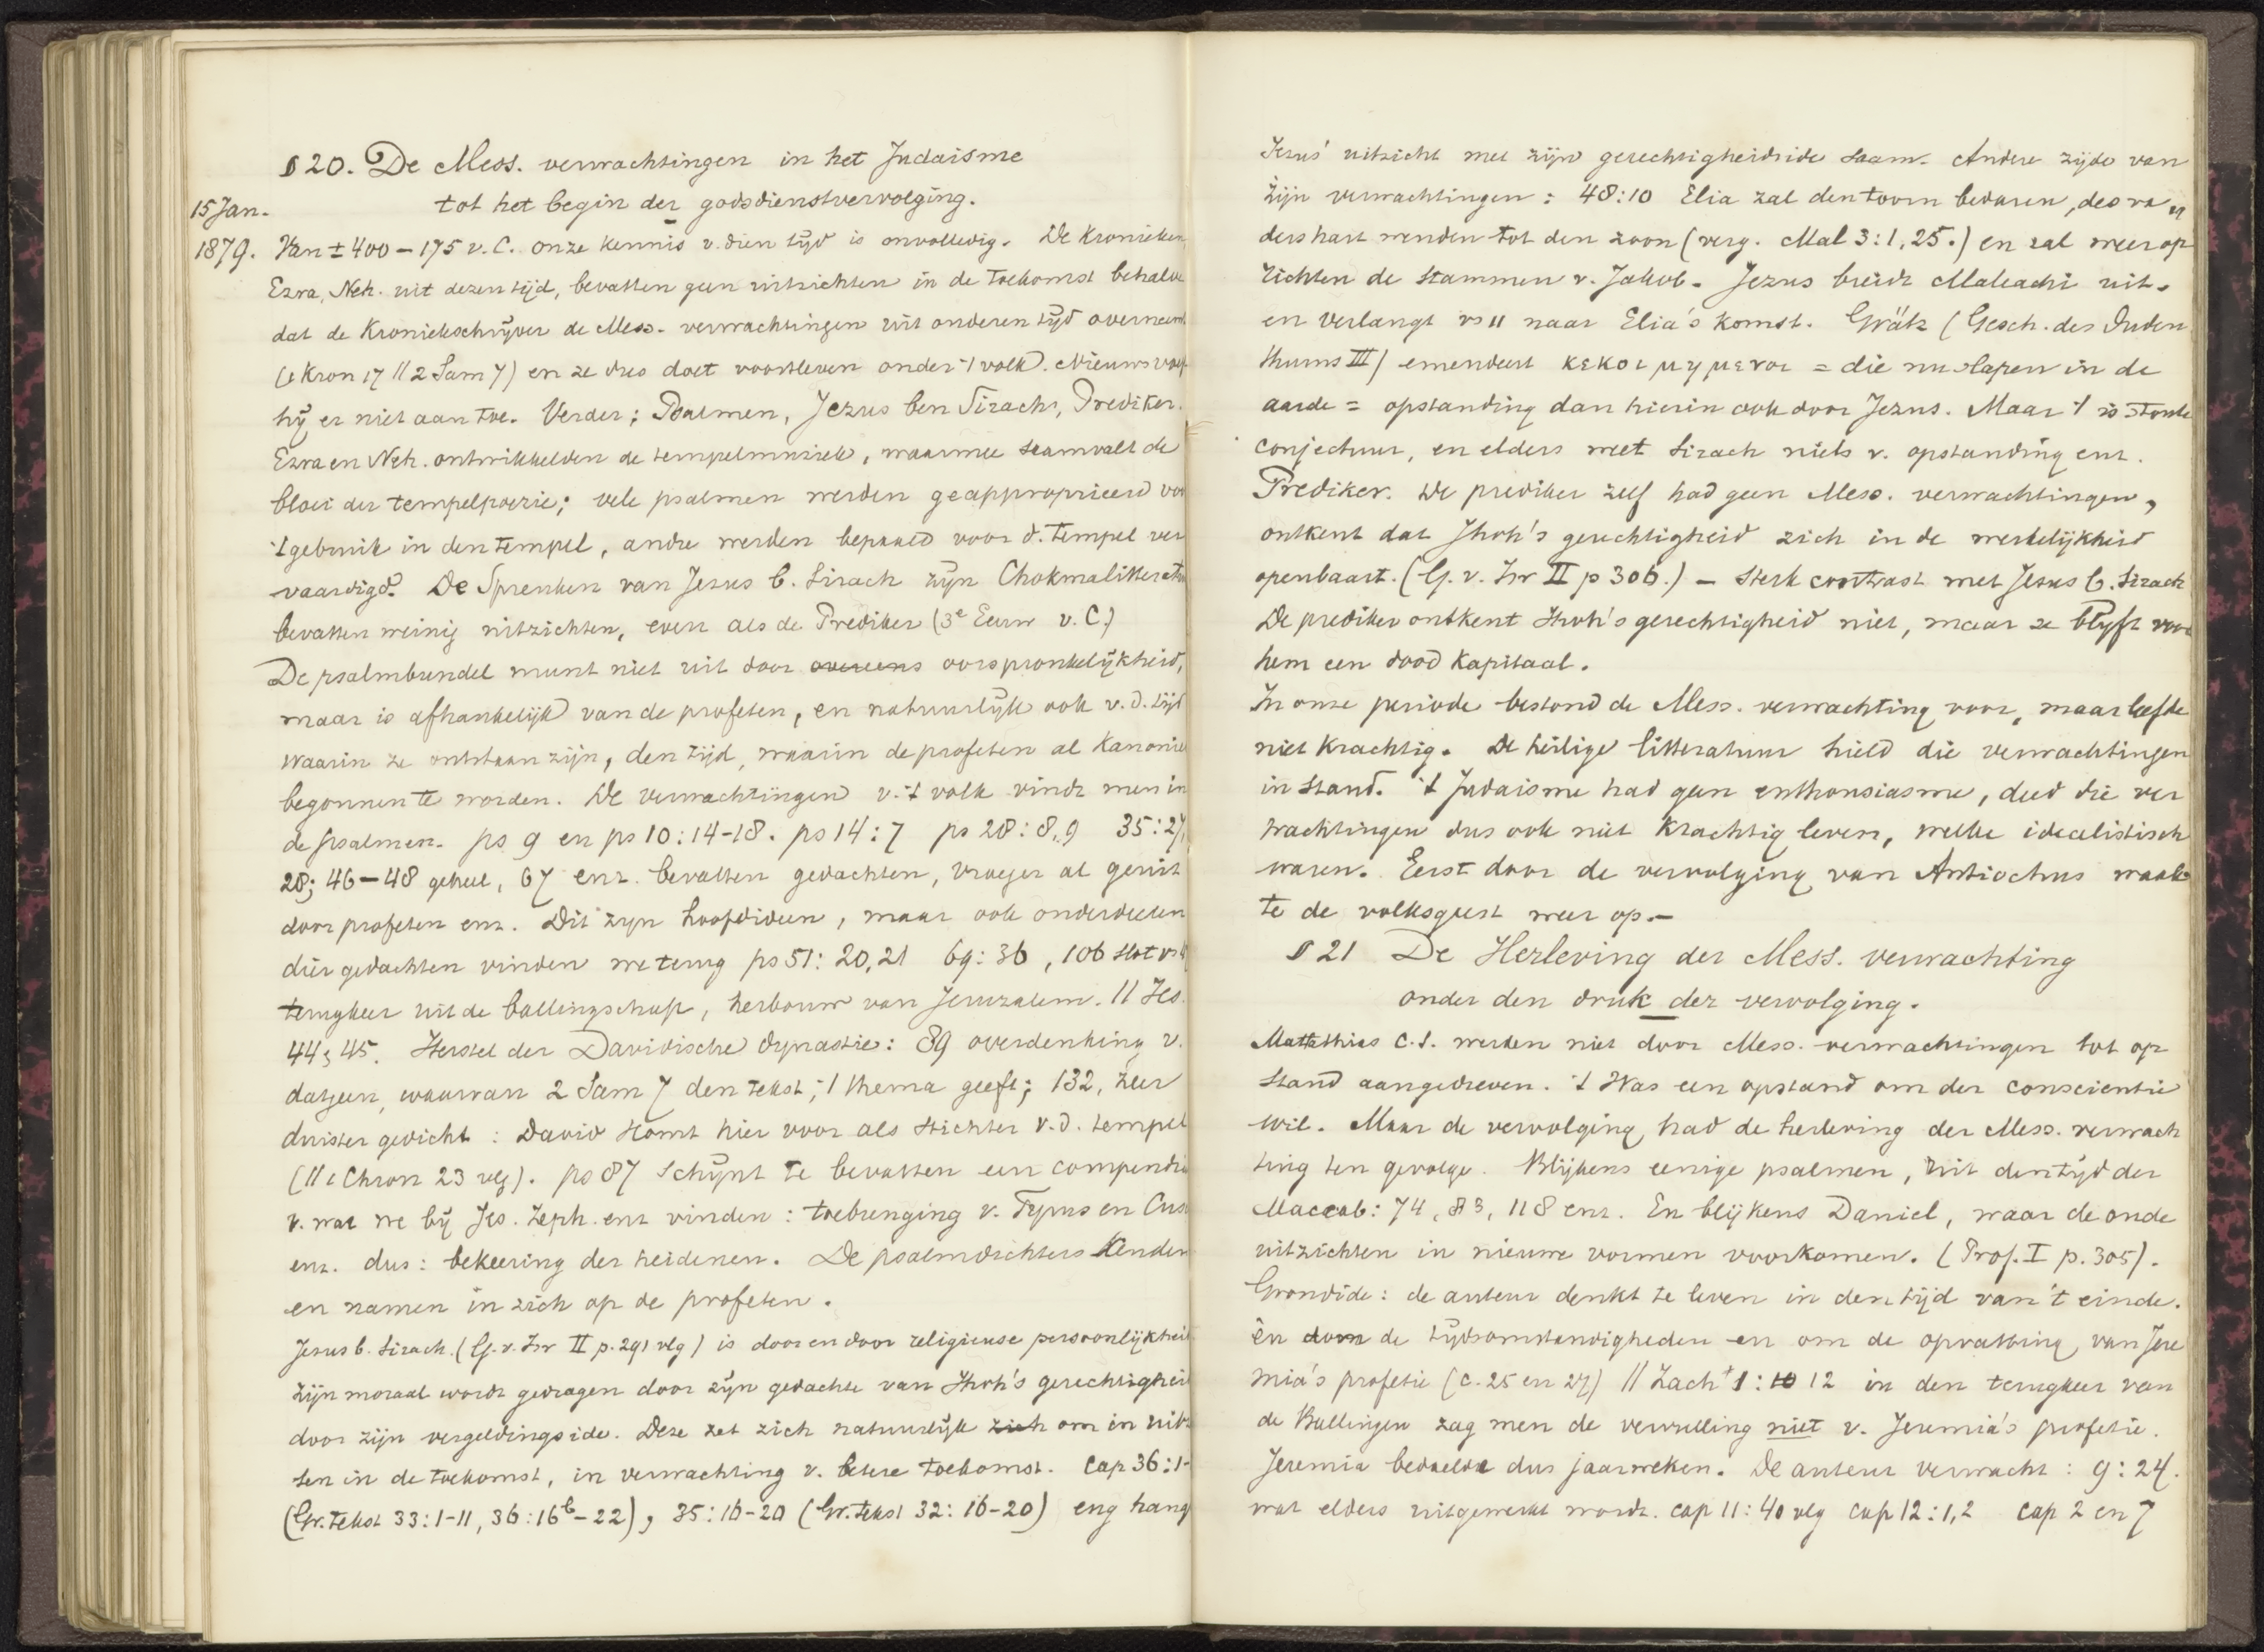 § 20. De Mess. verwachtingen in het Judaisme
tot het begin der godsdienstvervolging.
15 Jan.
1879. Van ± 400 – 175 v. C. onze kennis v. dien tijd is onvolledig. De Kronieken
Ezra, Neh. uit dezen tijd, bevatten geen uitzichten in de toekomst behalve
dat de Kroniekschrijver de Mess. verwachtingen uit onderen tijd overneemt
(1 Kron 17 // 2 Sam 7) en ze dus doet voortleven onder 't volk. Nieuws voegt
hij er niet aan toe. Verder: Psalmen, Jezus ben Sirach, Prediker.
Ezra en Neh. ontwikkelden de tempelmuziek, waarmee saamvalt de
bloei der tempelpoezie; vele psalmen werden geapproprieerd voor
't gebruik in den tempel, andre werden bepaald voor d. tempel ver
vaardigd. De Spreuken van Jezus b. Sirach zijn Chokmalitteratuur
bevatten weinig uitzichten, even als de Prediker (3e Eeuw v. C.)
De psalmbundel munt niet uit door overeens oorspronkelijkheid,
maar is afhankelijk van de profeten, en natuurlijk ook v. d. tijd
waarin ze ontstaan zijn, den tijd, waarin de profeten al Kanoniek
begonnen te worden. De verwachtingen v. 't volk vindt men in
de psalmen. ps 9 en ps 10:14-18. ps 14:7 ps 28:8,9 35:27,
28; 46–48 geheel, 67 enz. bevatten gedachten, vroeger al geuit
door profeten enz. Dit zijn hoofdideen, maar ook onderdeelen
dier gedachten vinden we terug ps 51:20,21 69:36, 106 slot vs
terugkeer uit de ballingschap, herbouw van Jeruzalem. // Jes.
44, 45. Herstel der Davidische dynastie: 89 overdenking v.
datgeen, waarvan 2 Sam 7 den tekst, 't thema geeft; 132, zeer
duister gedicht: David komt hier voor als stichter v. d. tempel
(// 1 Chron 23 vlg). ps 87 schijnt te bevatten een compendium
v. wat we bij Jes. Zeph. enz vinden: toebrenging v. Tyrus en Cus
enz. dus: bekeering der heidenen. De psalmdichters kenden
en namen in zich op de profeten.
Jezus b. Sirach. (G. v. Isr II p. 291 vlg) is door en door religieuse persoonlijkheid
Zijn moraal wordt gedragen door zijn gedachte van Jhvh's gerechtigheid
door zijn vergeldingsidee. Deze zet zich natuurlijk zich om in uitz
ten in de toekomst, in verwachting v. betere toekomst. Cap 36:1-
(Gr. Tekst 33:1-11, 36:16b–22), 35:16-20 (Gr. Tekst 32:16-20) eng hangt
Jezus' uitzicht met zijn gerechtigheidside saam. Andere zijde van
zijn verwachtingen: 48:10 Elia zal den toorn bedaren, des va
ders hart wenden tot den zoon (verg. Mal 3:1, 25.) en zal weer op
richten de stammen v. Jakob. Jezus breidt Maleachi uit.
en verlangt vs 11 naar Elia's komst. Grätz (Gesch. des Juden
thums III) emendeert κεκοιμημενοι = die nu slapen in de
aarde = opstanding dan hierin ook door Jezus. Maar 't is stoute
conjectuur, en elders weet Sirach niets v. opstanding enz.
Prediker. De prediker zelf had geen Mess. verwachtingen,
ontkent dat Jhvh's gerechtigheid zich in de werkelijkheid
openbaart. (G. v. Isr II p 306.) – Sterk contrast met Jezus b. Sirach
De prediker ontkent Jhvh's gerechtigheid niet, maar ze blijft voor
hem een dood kapitaal.
In onze periode bestond de Mess. verwachting voor, maar leefde
niet krachtig. De heilige litteratuur hield die verwachtingen
in stand. 't Judaisme had geen enthousiasme, deed die ver
wachtingen dus ook niet krachtig leven, welke idealistisch
waren. Eerst door de vervolging van Antiochus waak
te de volksgeest weer op.–
§ 21 De Herleving der Mess. verwachting
onder den druk der vervolging.
Mattathias c.s. werden niet door Mess. verwachtingen tot op
stand aangedreven. 't Was een opstand om der conscientie
wil. Maar de vervolging had de herleving der Mess. verwach
ting ten gevolge. Blijkens eenige psalmen, uit den tijd der
Maccab: 74, 83, 118 enz. En blijkens Daniel, waar de oude
uitzichten in nieuwe vormen voorkomen. (Prof. I p. 305).
Grondide: de auteur denkt te leven in den tijd van 't einde.
èn door de tijdsomstandigheden en om de opvatting van Jere
mia's profetie (c. 25 en 29) // Zach 1:10 12 in den terugkeer van
de Ballingen zag men de vervulling niet v. Jeremia's profetie.
Jeremia bedoelde dus jaarweken. De auteur verwacht: 9:24.
wat elders uitgewerkt wordt. cap 11:40 vlg cap 12:1,2 cap 2 en 7